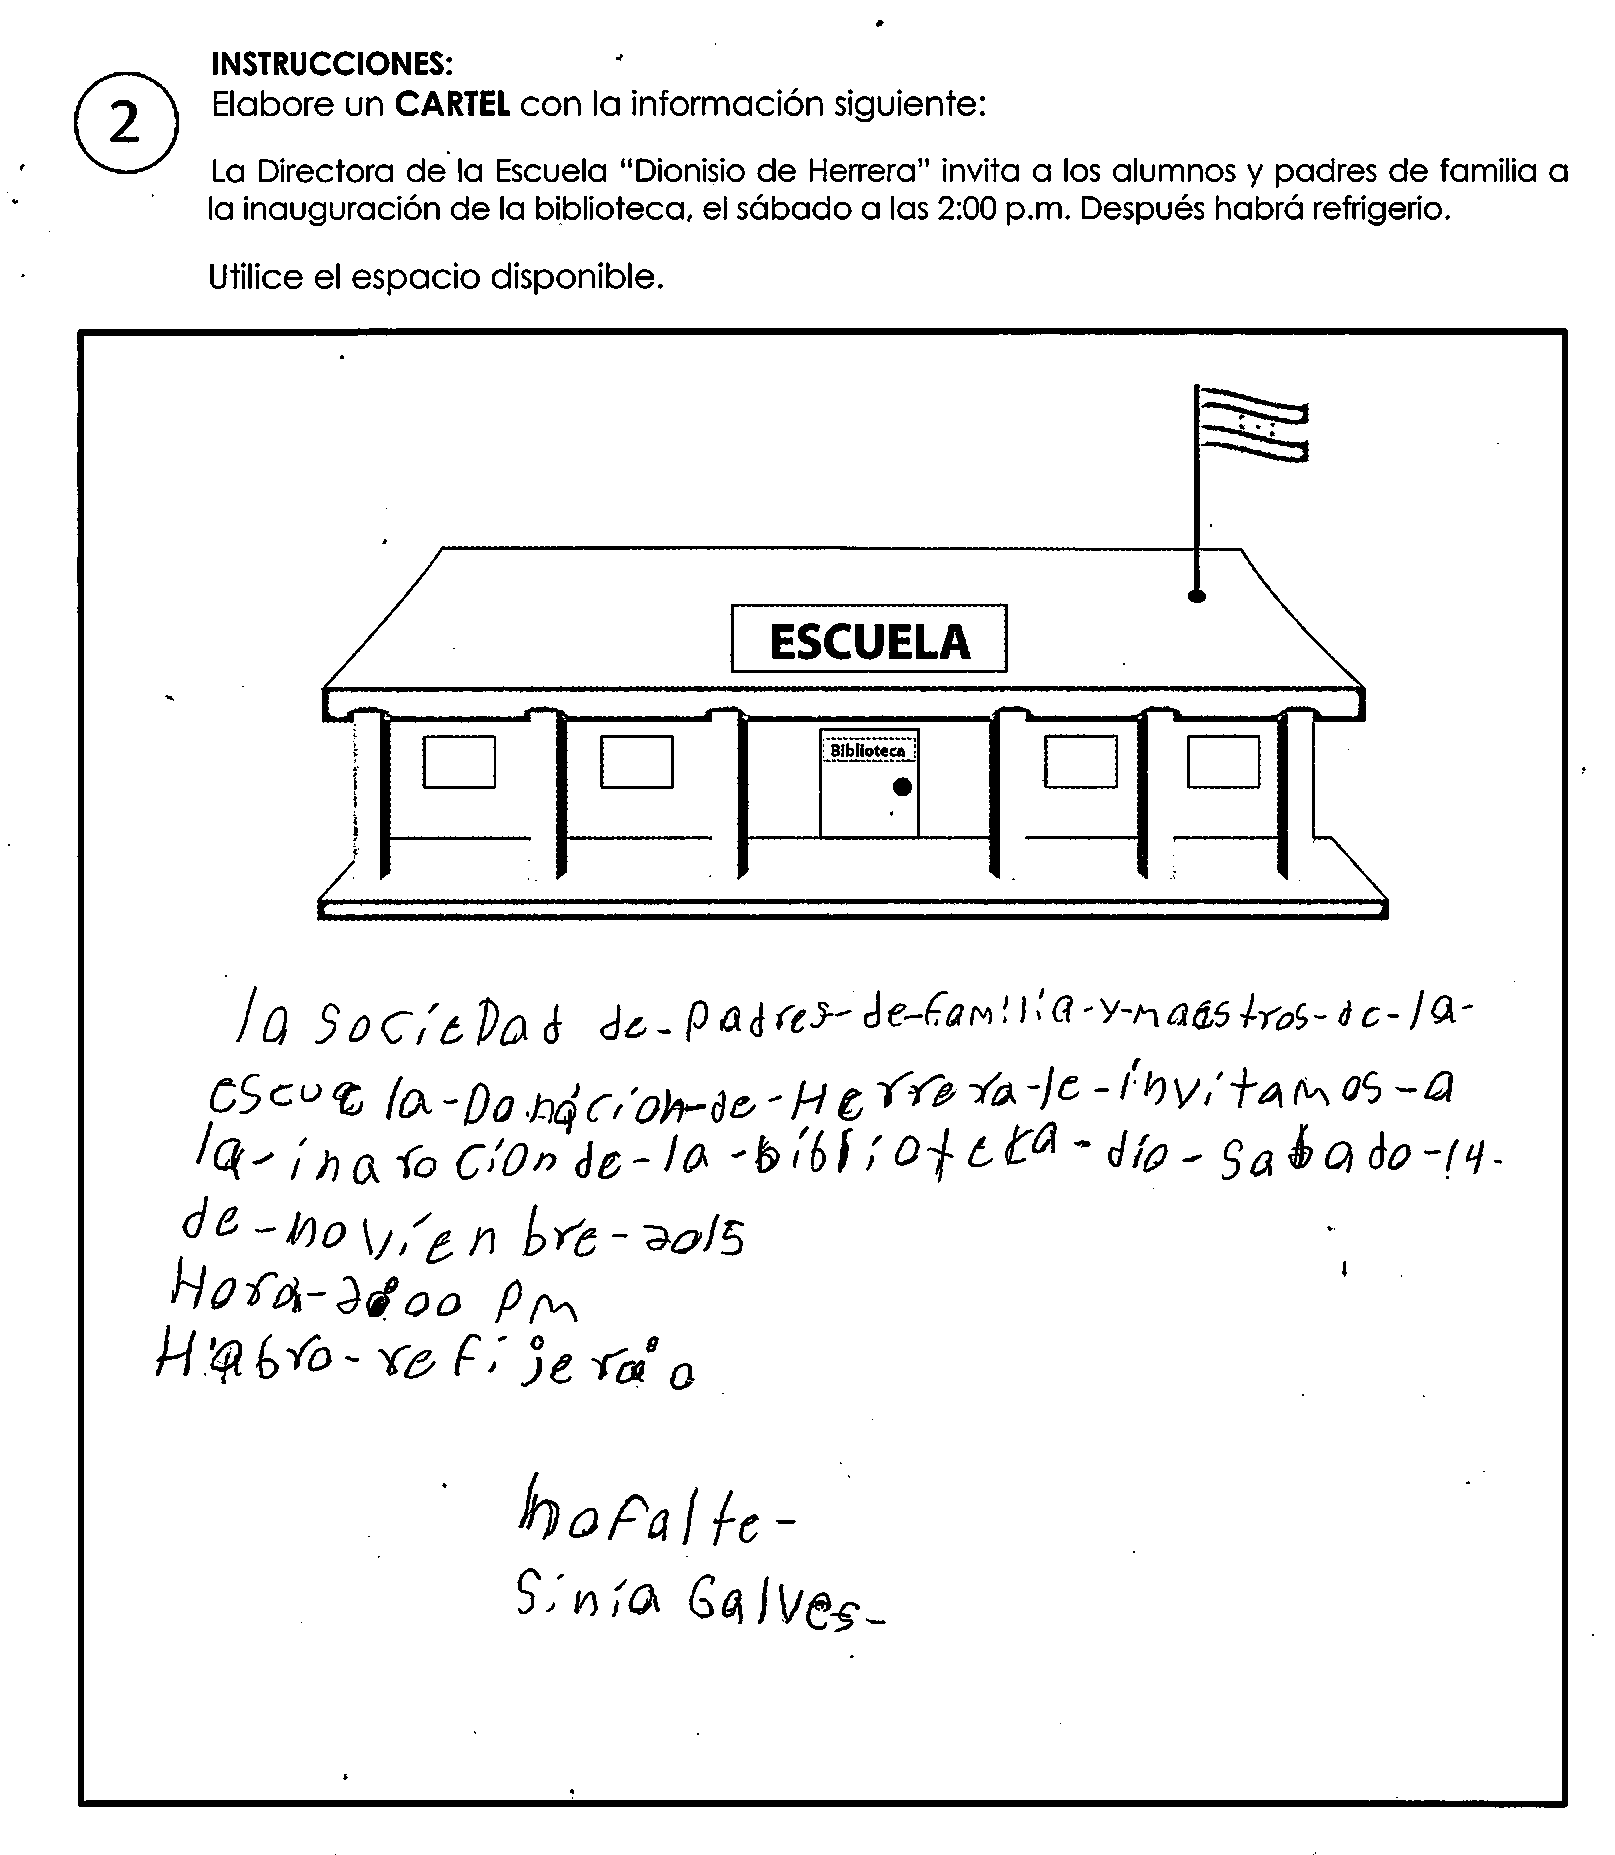 INSTRUCCIONES:
2
Elabore un CARTEL con la información siguiente:
La Directora de la Escuela “Dionisio de Herrera” invita a los alumnos y padres de familia a
la inauguración de la biblioteca, el sábado a las 2:00 p.m. Después habrá refrigerio.
Utilice el espacio disponible.
ESCUELA
Biblioteca
la socieDad de-padres-de-familia-y-maestros-de-la-
escuela-Donación-de-Herrera-le-invitamos-a
la-inarocion de-la-biblioteca-dio-sabado-14-
de-novienbre-2015
Hora-2:00 PM
Habro-refijerio
nofalte-
Sinia Galves-